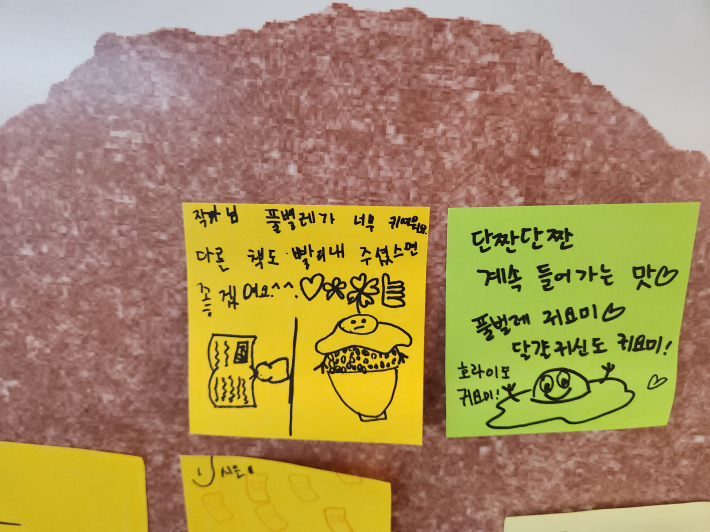 작가님 풀벌레가 너무 귀여워요.
다른 책도 빨리내 주셨스면
좋겠어요.^^.♡
단짠단짠
계속 들어가는 맛♡
풀벌레 귀요미♡
달걀귀신도 귀요미!
호라이도
귀요미!